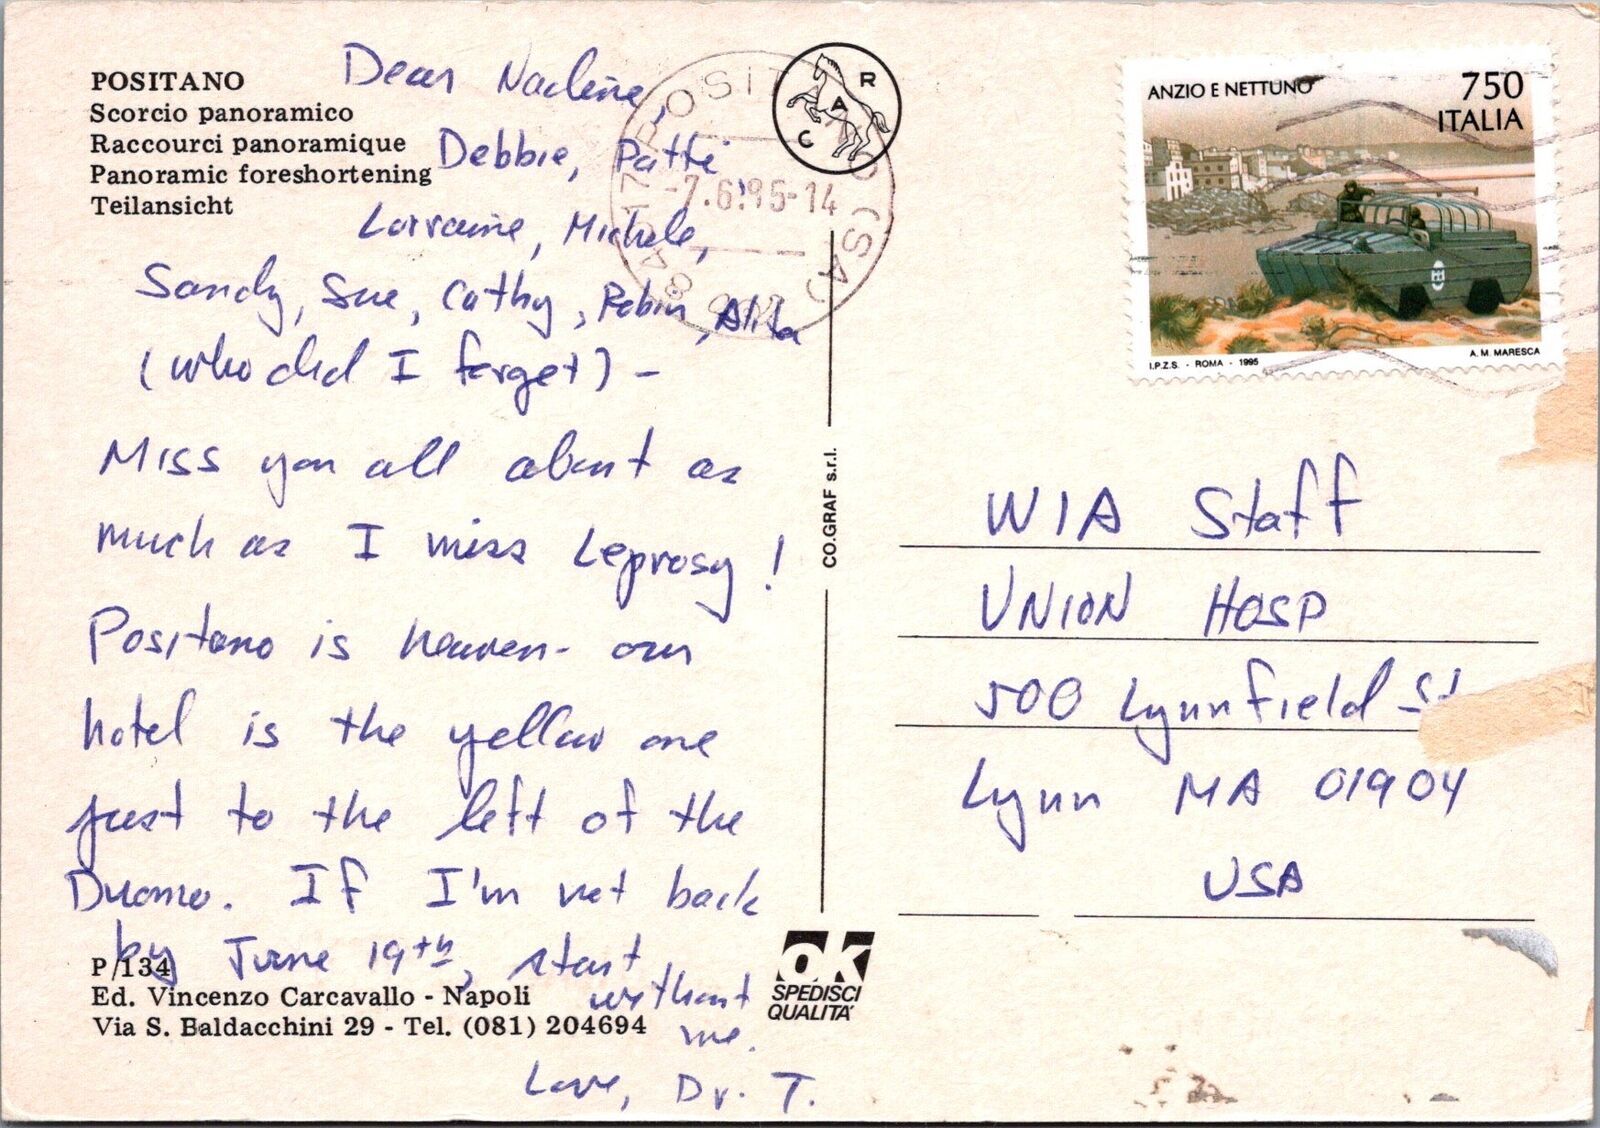 POSITANO
Scorcio panoramico
Raccourci panoramique
Panoramic foreshortening
Teilansicht
Dear Nadine,
Debbie, Patti
Lorraine, Michele,
Sandy, Sue, Cathy, Robin,
(who did I forget) -
Miss you all about as
much as I miss Leprosy!
Positano is heaven - our
hotel is the yellow one
just to the left of the
Duomo. If I'm not back
by June 19th, start
without
me.
Love, Dr. T.
P/134
Ed. Vincenzo Carcavallo - Napoli
Via S. Baldacchini 29 - Tel. (081) 204694
C A R
84017 POSITANO (SA)
-7.6.95-14
CO.GRAF s.r.l.
OK
SPEDISCI
QUALITÀ
ANZIO E NETTUNO
750
ITALIA
I.P.Z.S. - ROMA - 1995
A. M. MARESCA
WIA Staff
UNION HOSP
500 Lynnfield St
Lynn MA 01904
USA